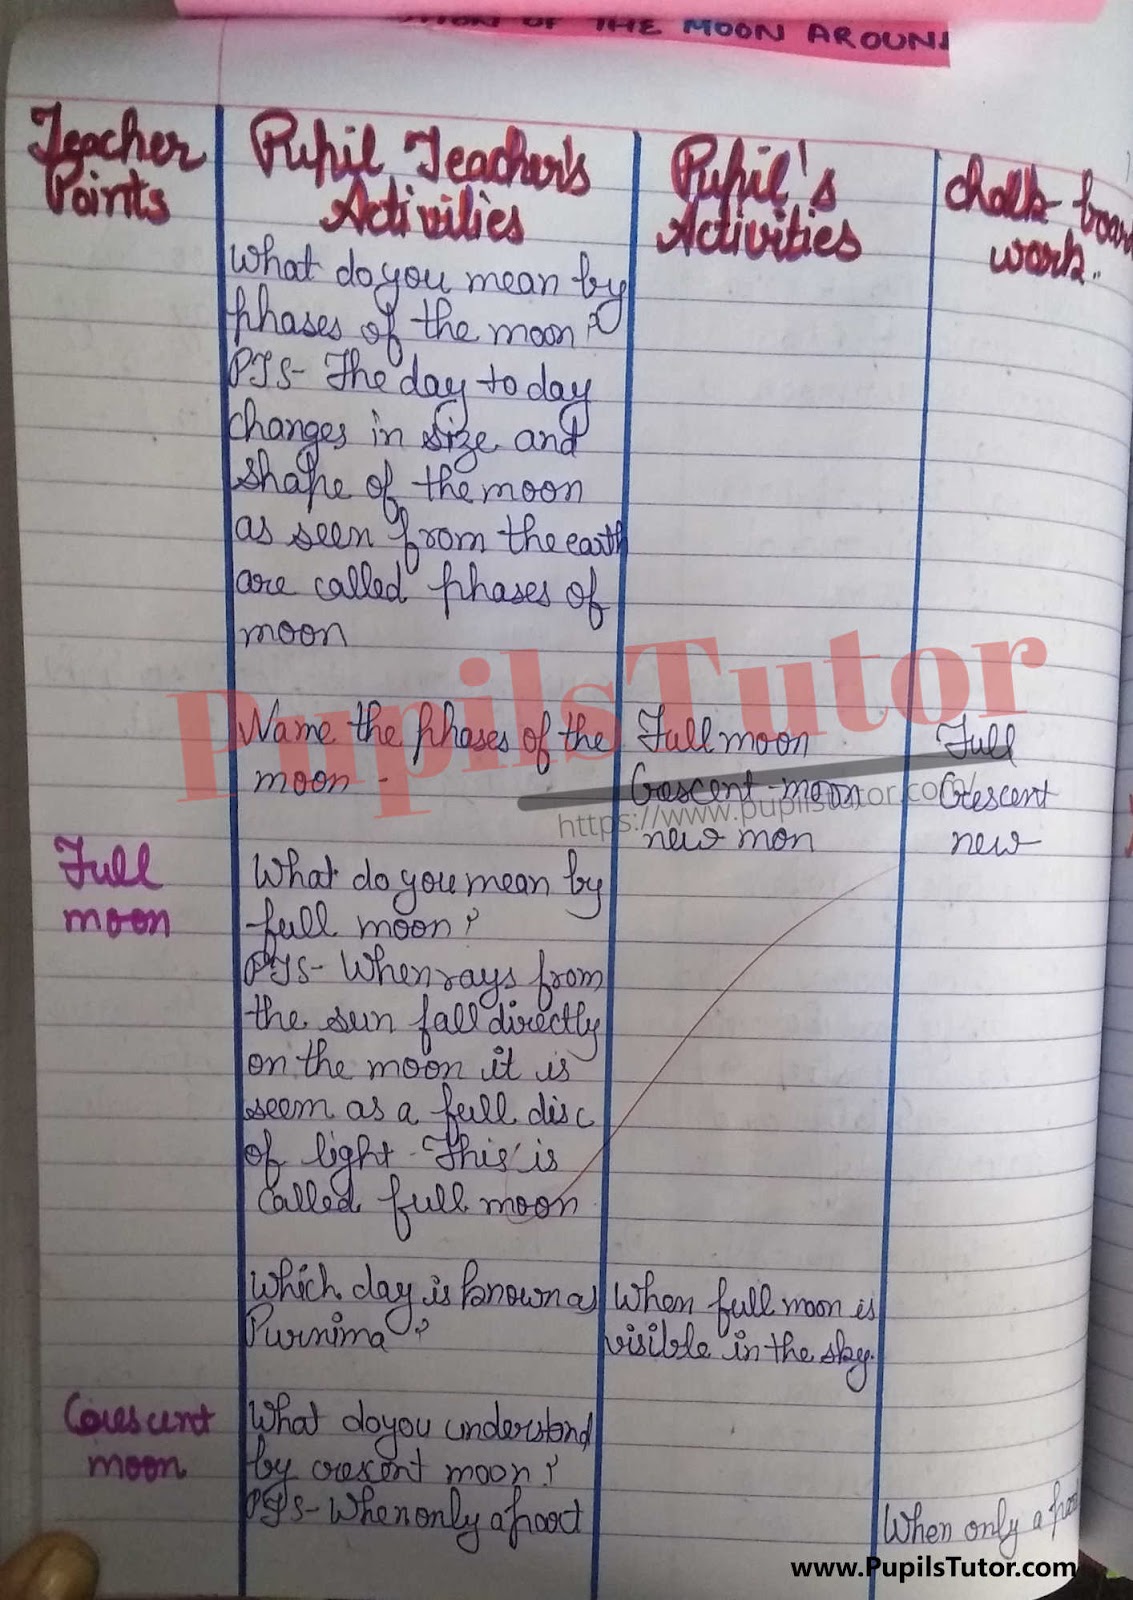 OF THE MOON AROUN
Teacher
Points
Pupil Teacher's
Activities
Pupil's
Activities
Chalk-board
work..
What do you mean by
phases of the moon?
PTS- The day to day
changes in size and
shape of the moon
as seen from the earth
are called phases of
moon
Name the phases of the
moon -
Full moon
Crescent-moon
new mon
Full
Crescent
new
Full
moon
What do you mean by
full moon?
PTS- When rays from
the sun fall directly
on the moon it is
seem as a full disc
of light - This is
called full moon
Which day is known as
Purnima?
When full moon is
visible in the sky.
Crescent
moon
What do you understand
by crescent moon?
PTS- When only a part
When only a
PupilsTutor
https://www.pupilstutor.com/
www.PupilsTutor.com